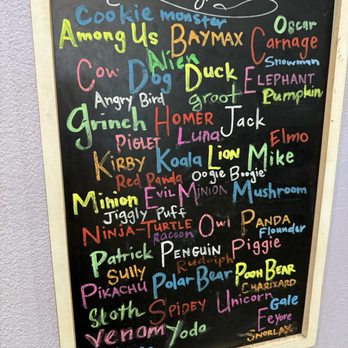 Cookie monster
Oscar
Among Us BAYMAX Carnage
Alien
Snowman
Cow Dog Duck ELEPHANT
Angry Bird groot Pumpkin
grinch HOMER Jack
PIGLET Luna Elmo
KIRBY Koala LION Mike
Red Panda Oogie Boogie
Minion EVIL MINION Mushroom
Jiggly Puff
NINJA-TURTLE Owl PANDA
Racoon Flounder
Patrick PENGUIN Piggie
Sully Rudolph
PIKACHU Polar BEAR POOH BEAR
CHARIZARD
Sloth SPIDEY Unicorn Gale
Eeyore
venom Yoda SNORLAX